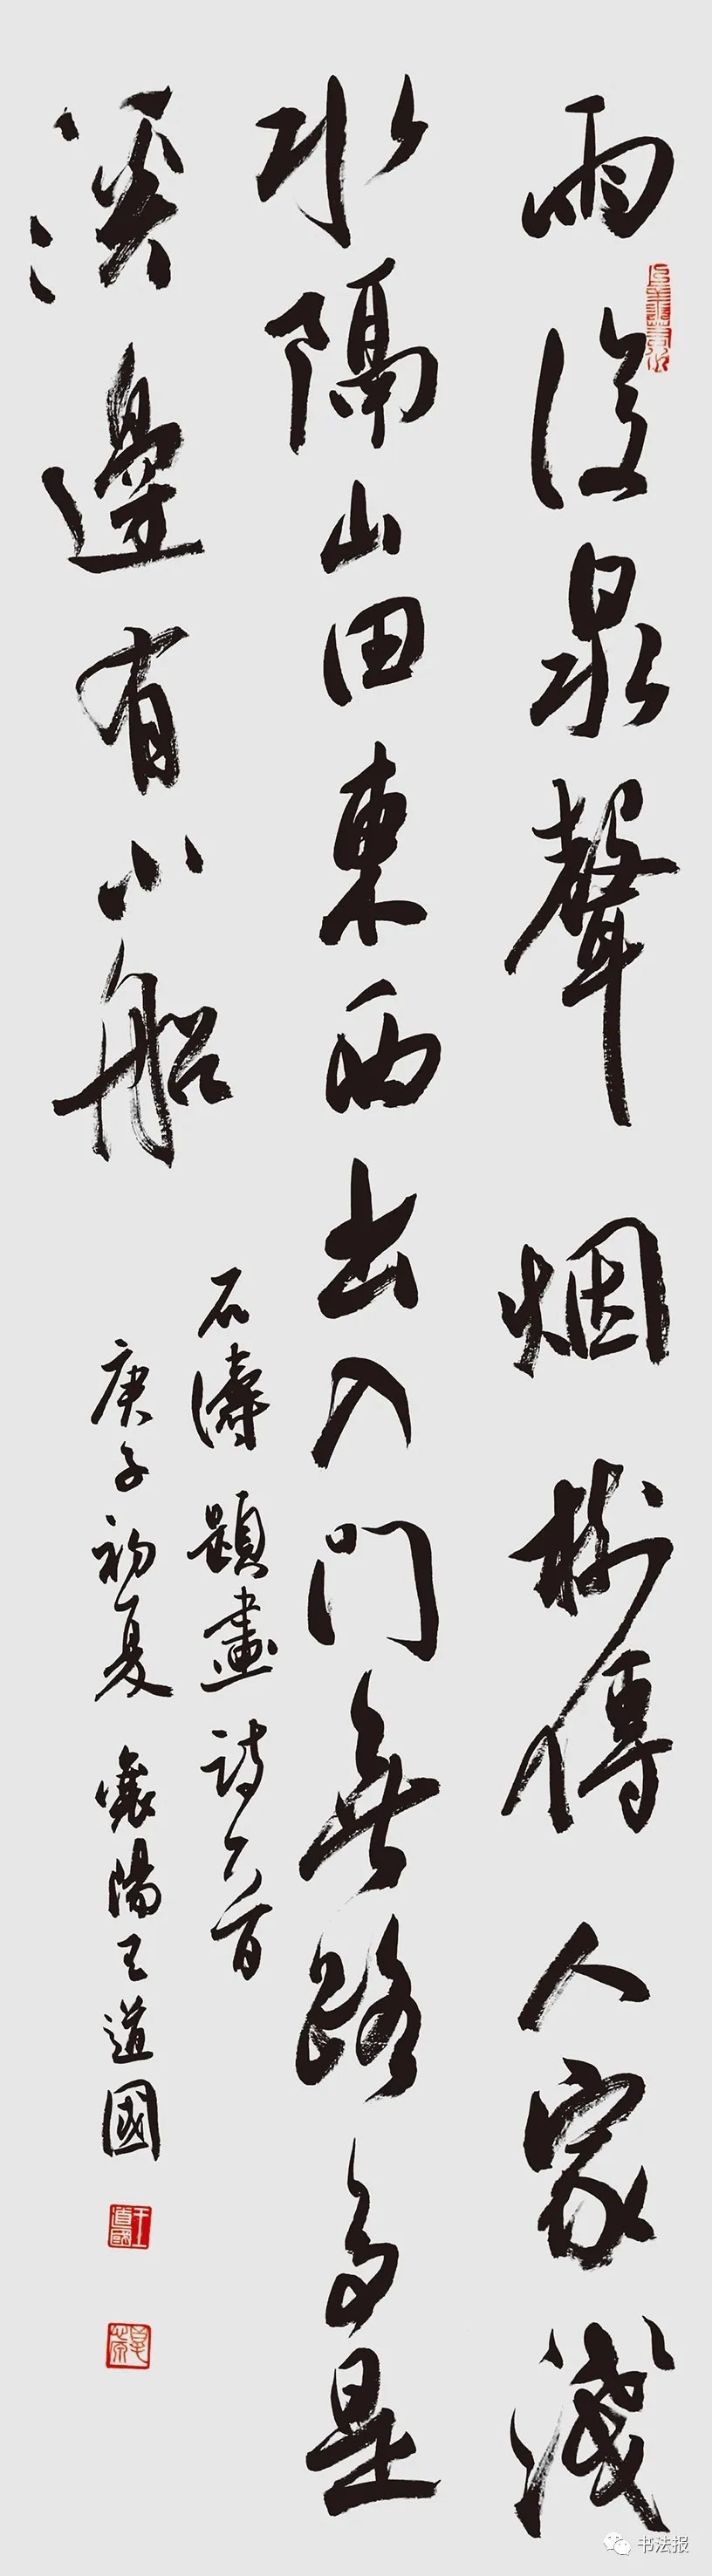 雨後泉聲烟樹傳人家淺
水隔山田東西出入門無路多是
溪邊有小船
石濤題畫詩一首
庚子初夏襄陽王道國
王道國
书法报